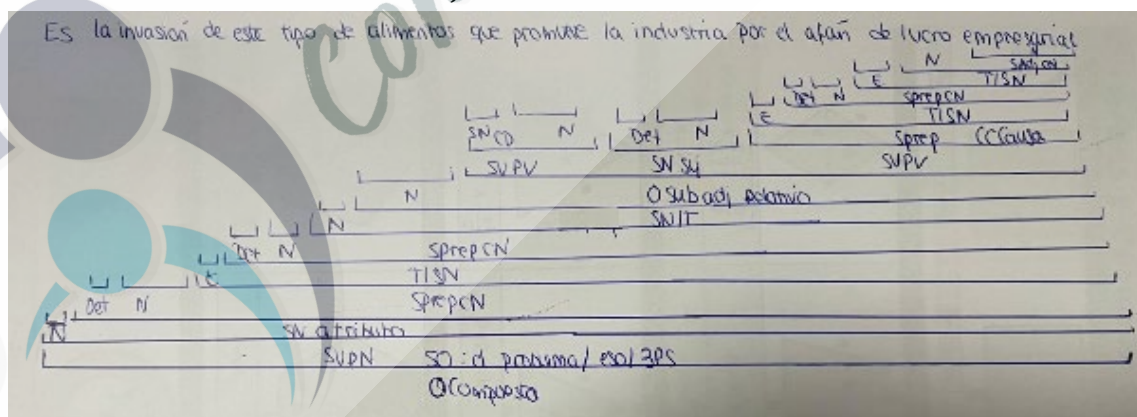 Es la invasión de este tipo de alimentos que promueve la industria por el afán de lucro empresarial
N SAdjCN
Det N E T/SN
E SprepCN
SN CD N Det N T/SN
Sprep CCCausa
SVPV SN Suj SVPV
N O sub adj relativo
N SN/T
Det N SprepCN
E T/SN
Det N SprepCN
N SN atributo
SVPN SO: el problema/eso/3PS
O Compuesta